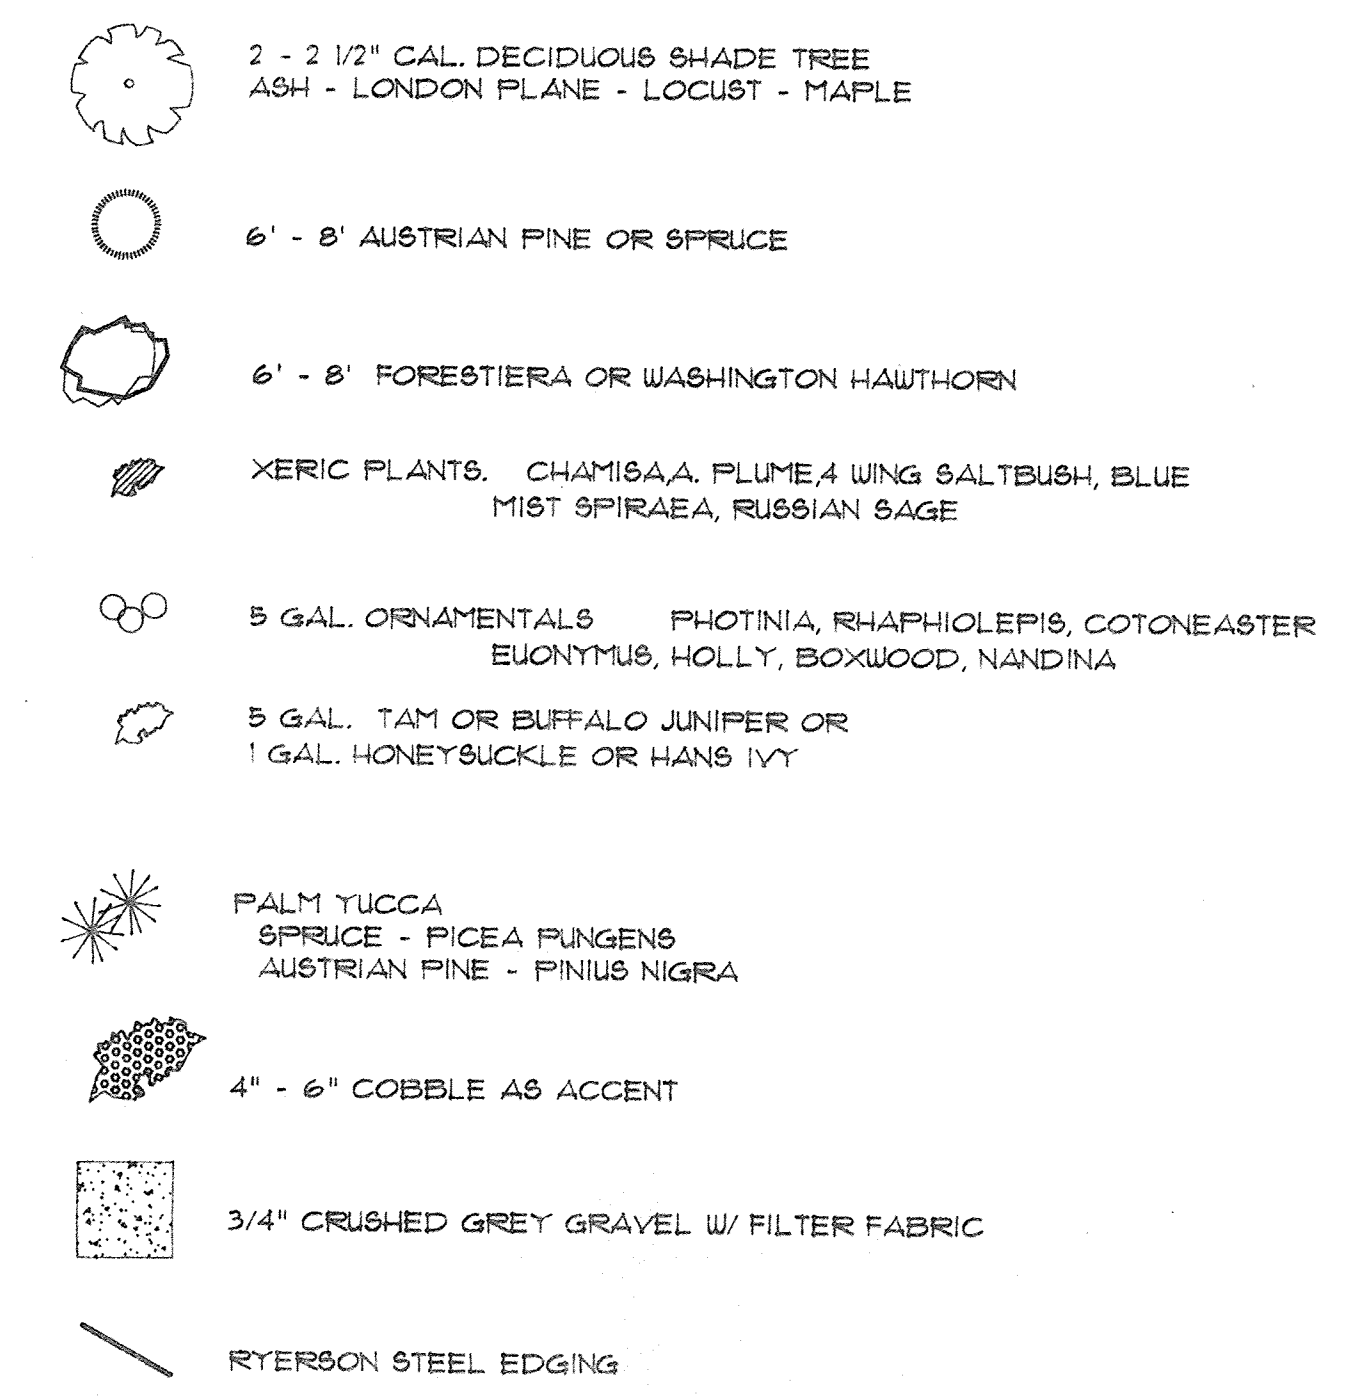 2 - 2 1/2" CAL. DECIDUOUS SHADE TREE
ASH - LONDON PLANE - LOCUST - MAPLE
6' - 8' AUSTRIAN PINE OR SPRUCE
6' - 8' FORESTIERA OR WASHINGTON HAWTHORN
XERIC PLANTS. CHAMISA,A. PLUME,4 WING SALTBUSH, BLUE
MIST SPIRAEA, RUSSIAN SAGE
5 GAL. ORNAMENTALS PHOTINIA, RHAPHIOLEPIS, COTONEASTER
EUONYMUS, HOLLY, BOXWOOD, NANDINA
5 GAL. TAM OR BUFFALO JUNIPER OR
1 GAL. HONEYSUCKLE OR HANS IVY
PALM YUCCA
SPRUCE - PICEA PUNGENS
AUSTRIAN PINE - PINIUS NIGRA
4" - 6" COBBLE AS ACCENT
3/4" CRUSHED GREY GRAVEL W/ FILTER FABRIC
RYERSON STEEL EDGING